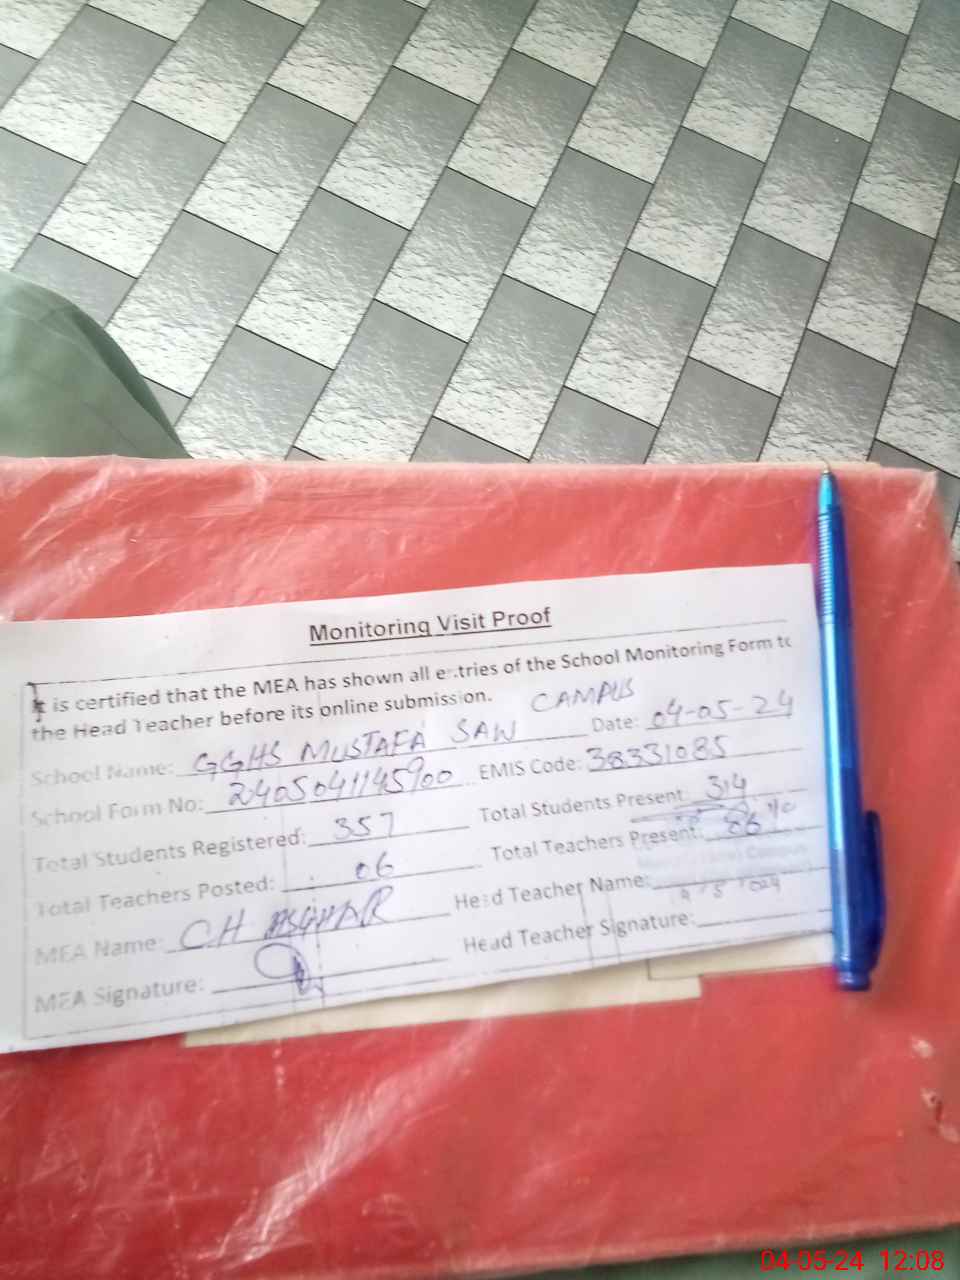 Monitoring Visit Proof
It is certified that the MEA has shown all entries of the School Monitoring Form to
the Head Teacher before its online submission.
School Name: GGHS MUSTAFA SAW CAMPUS Date: 04-05-24
School Form No: 2405041145900 EMIS Code: 38331085
Total Students Registered: 357 Total Students Present: 314
Total Teachers Posted: 06 Total Teachers Present:
MEA Name: CH ASGHAR Head Teacher Name:
MEA Signature: Head Teacher Signature:
04-05-24 12:08